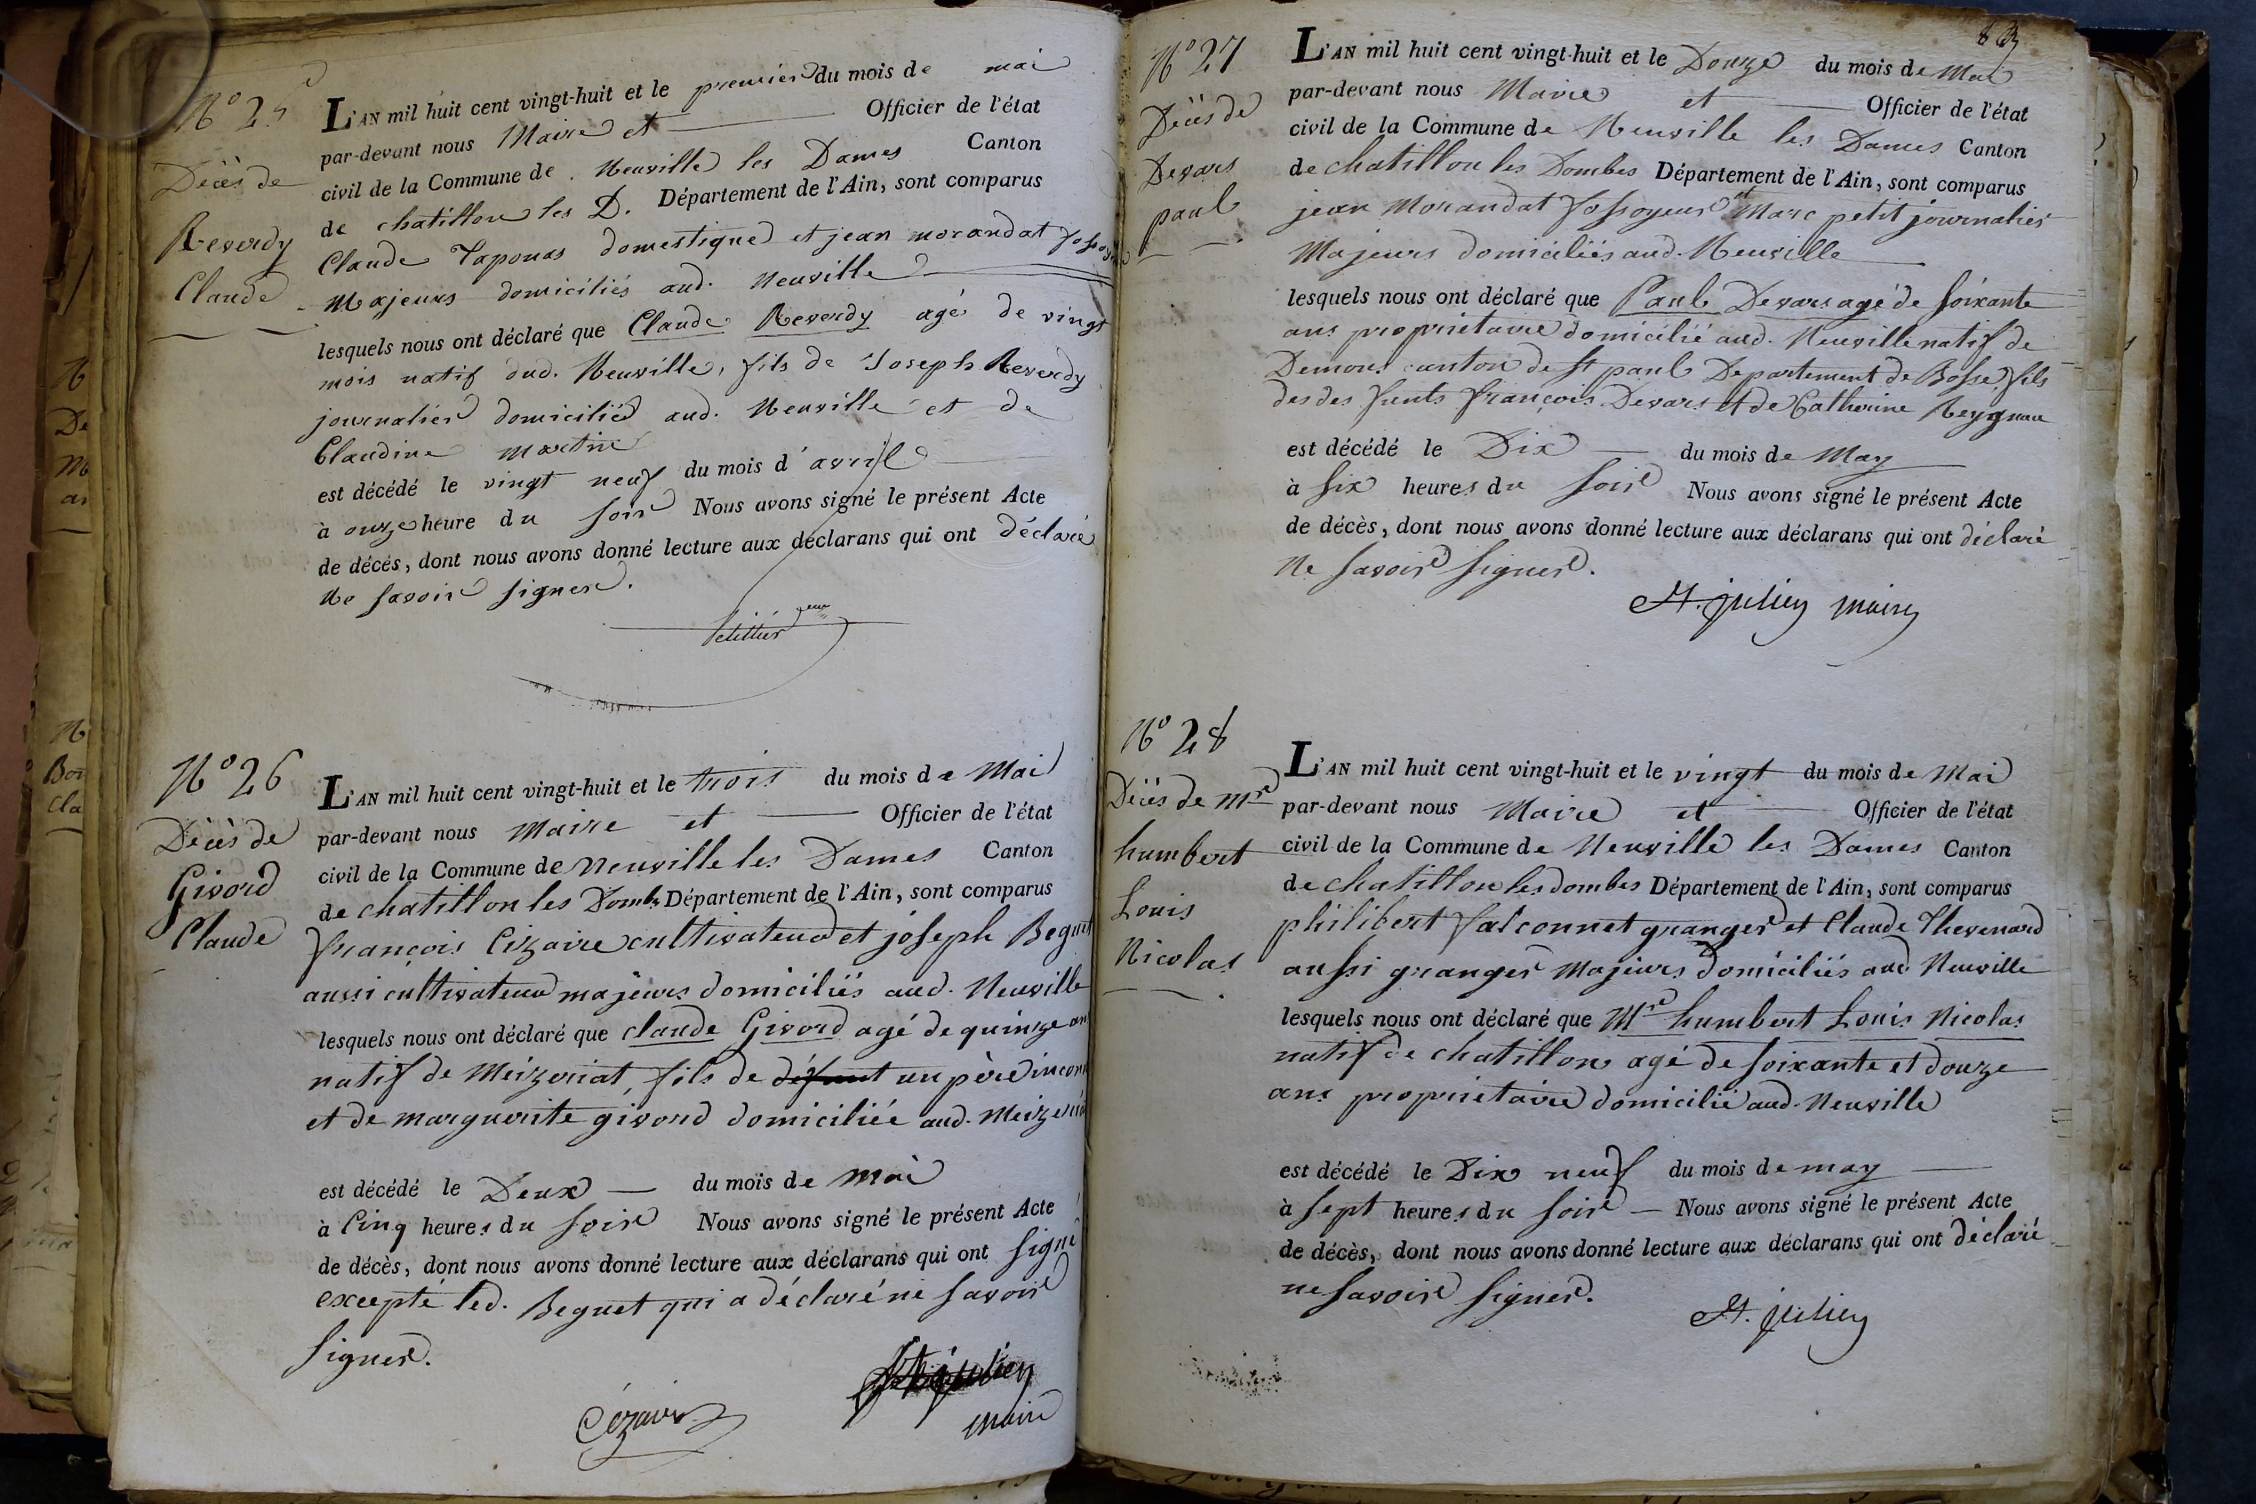 N° 25
Décès de
Reverdy
Claude
L'AN mil huit cent vingt-huit et le premier du mois de mai
par-devant nous Maire et Officier de l'état
civil de la Commune de Neuville les Dames Canton
de chatillon les D. Département de l'Ain, sont comparus
Claude Taponas domestique et jean morandat
Majeurs domiciliés aud. Neuville
lesquels nous ont déclaré que Claude Reverdy agé de vingt
mois natif dud. Neuville, fils de Joseph Reverdy
journalier domicilié aud. Neuville et de
Claudine Martin
est décédé le vingt neuf du mois d'avril
à onze heure du soir Nous avons signé le présent Acte
de décès, dont nous avons donné lecture aux déclarans qui ont déclaré
Ne savoir signer.
N° 26
Décès de
Givord
Claude
L'AN mil huit cent vingt-huit et le trois du mois de Mai
par-devant nous Maire et Officier de l'état
civil de la Commune de Neuville les Dames Canton
de chatillon les Dombs Département de l'Ain, sont comparus
françois Cizaire cultivateur et joseph Beguet
aussi cultivateur majeurs domiciliés aud. Neuville
lesquels nous ont déclaré que claude Givord agé de quinze ans
natif de Meizeriat, fils de défunt un père inconnu
et de marguerite givord domiciliée aud. Meizeriat
est décédé le Deux du mois de mai
à Cinq heures du soir Nous avons signé le présent Acte
de décès, dont nous avons donné lecture aux déclarans qui ont signé
excepté led. Beguet qui a déclaré ne savoir
signer.
Cézaire
St. julien
maire
83
N° 27
Décès de
Devars
paul
L'AN mil huit cent vingt-huit et le Douze du mois de Mai
par-devant nous Maire et Officier de l'état
civil de la Commune de Neuville les Dames Canton
de chatillon les Dombes Département de l'Ain, sont comparus
jean Morandat fossoyeur et Marc petit journalier
Majeurs domiciliés aud. Neuville
lesquels nous ont déclaré que Paul Devars agé de soixante
ans propriétaire domicilié aud. Neuville natif de
Demons canton de St paul Departement de Bosse, fils
des des funts françois Devars et de Catherine
est décédé le Dix du mois de May
à six heures du soir Nous avons signé le présent Acte
de décès, dont nous avons donné lecture aux déclarans qui ont déclaré
Ne savoir signer.
St. julien maire
N° 28
Décès de Mr
humbert
Louis
Nicolas
L'AN mil huit cent vingt-huit et le vingt du mois de Mai
par-devant nous Maire et Officier de l'état
civil de la Commune de Neuville les Dames Canton
de chatillon les dombes Département de l'Ain, sont comparus
philibert falconnet granger et Claude Thevenard
aussi granger Majeurs domiciliés aud Neuville
lesquels nous ont déclaré que Mr humbert Louis Nicolas
natif de chatillon agé de soixante et douze
ans propriétaire domicilié aud. Neuville
est décédé le Dix neuf du mois de may
à sept heures du soir Nous avons signé le présent Acte
de décès, dont nous avons donné lecture aux déclarans qui ont déclaré
ne savoir signer.
St. julien